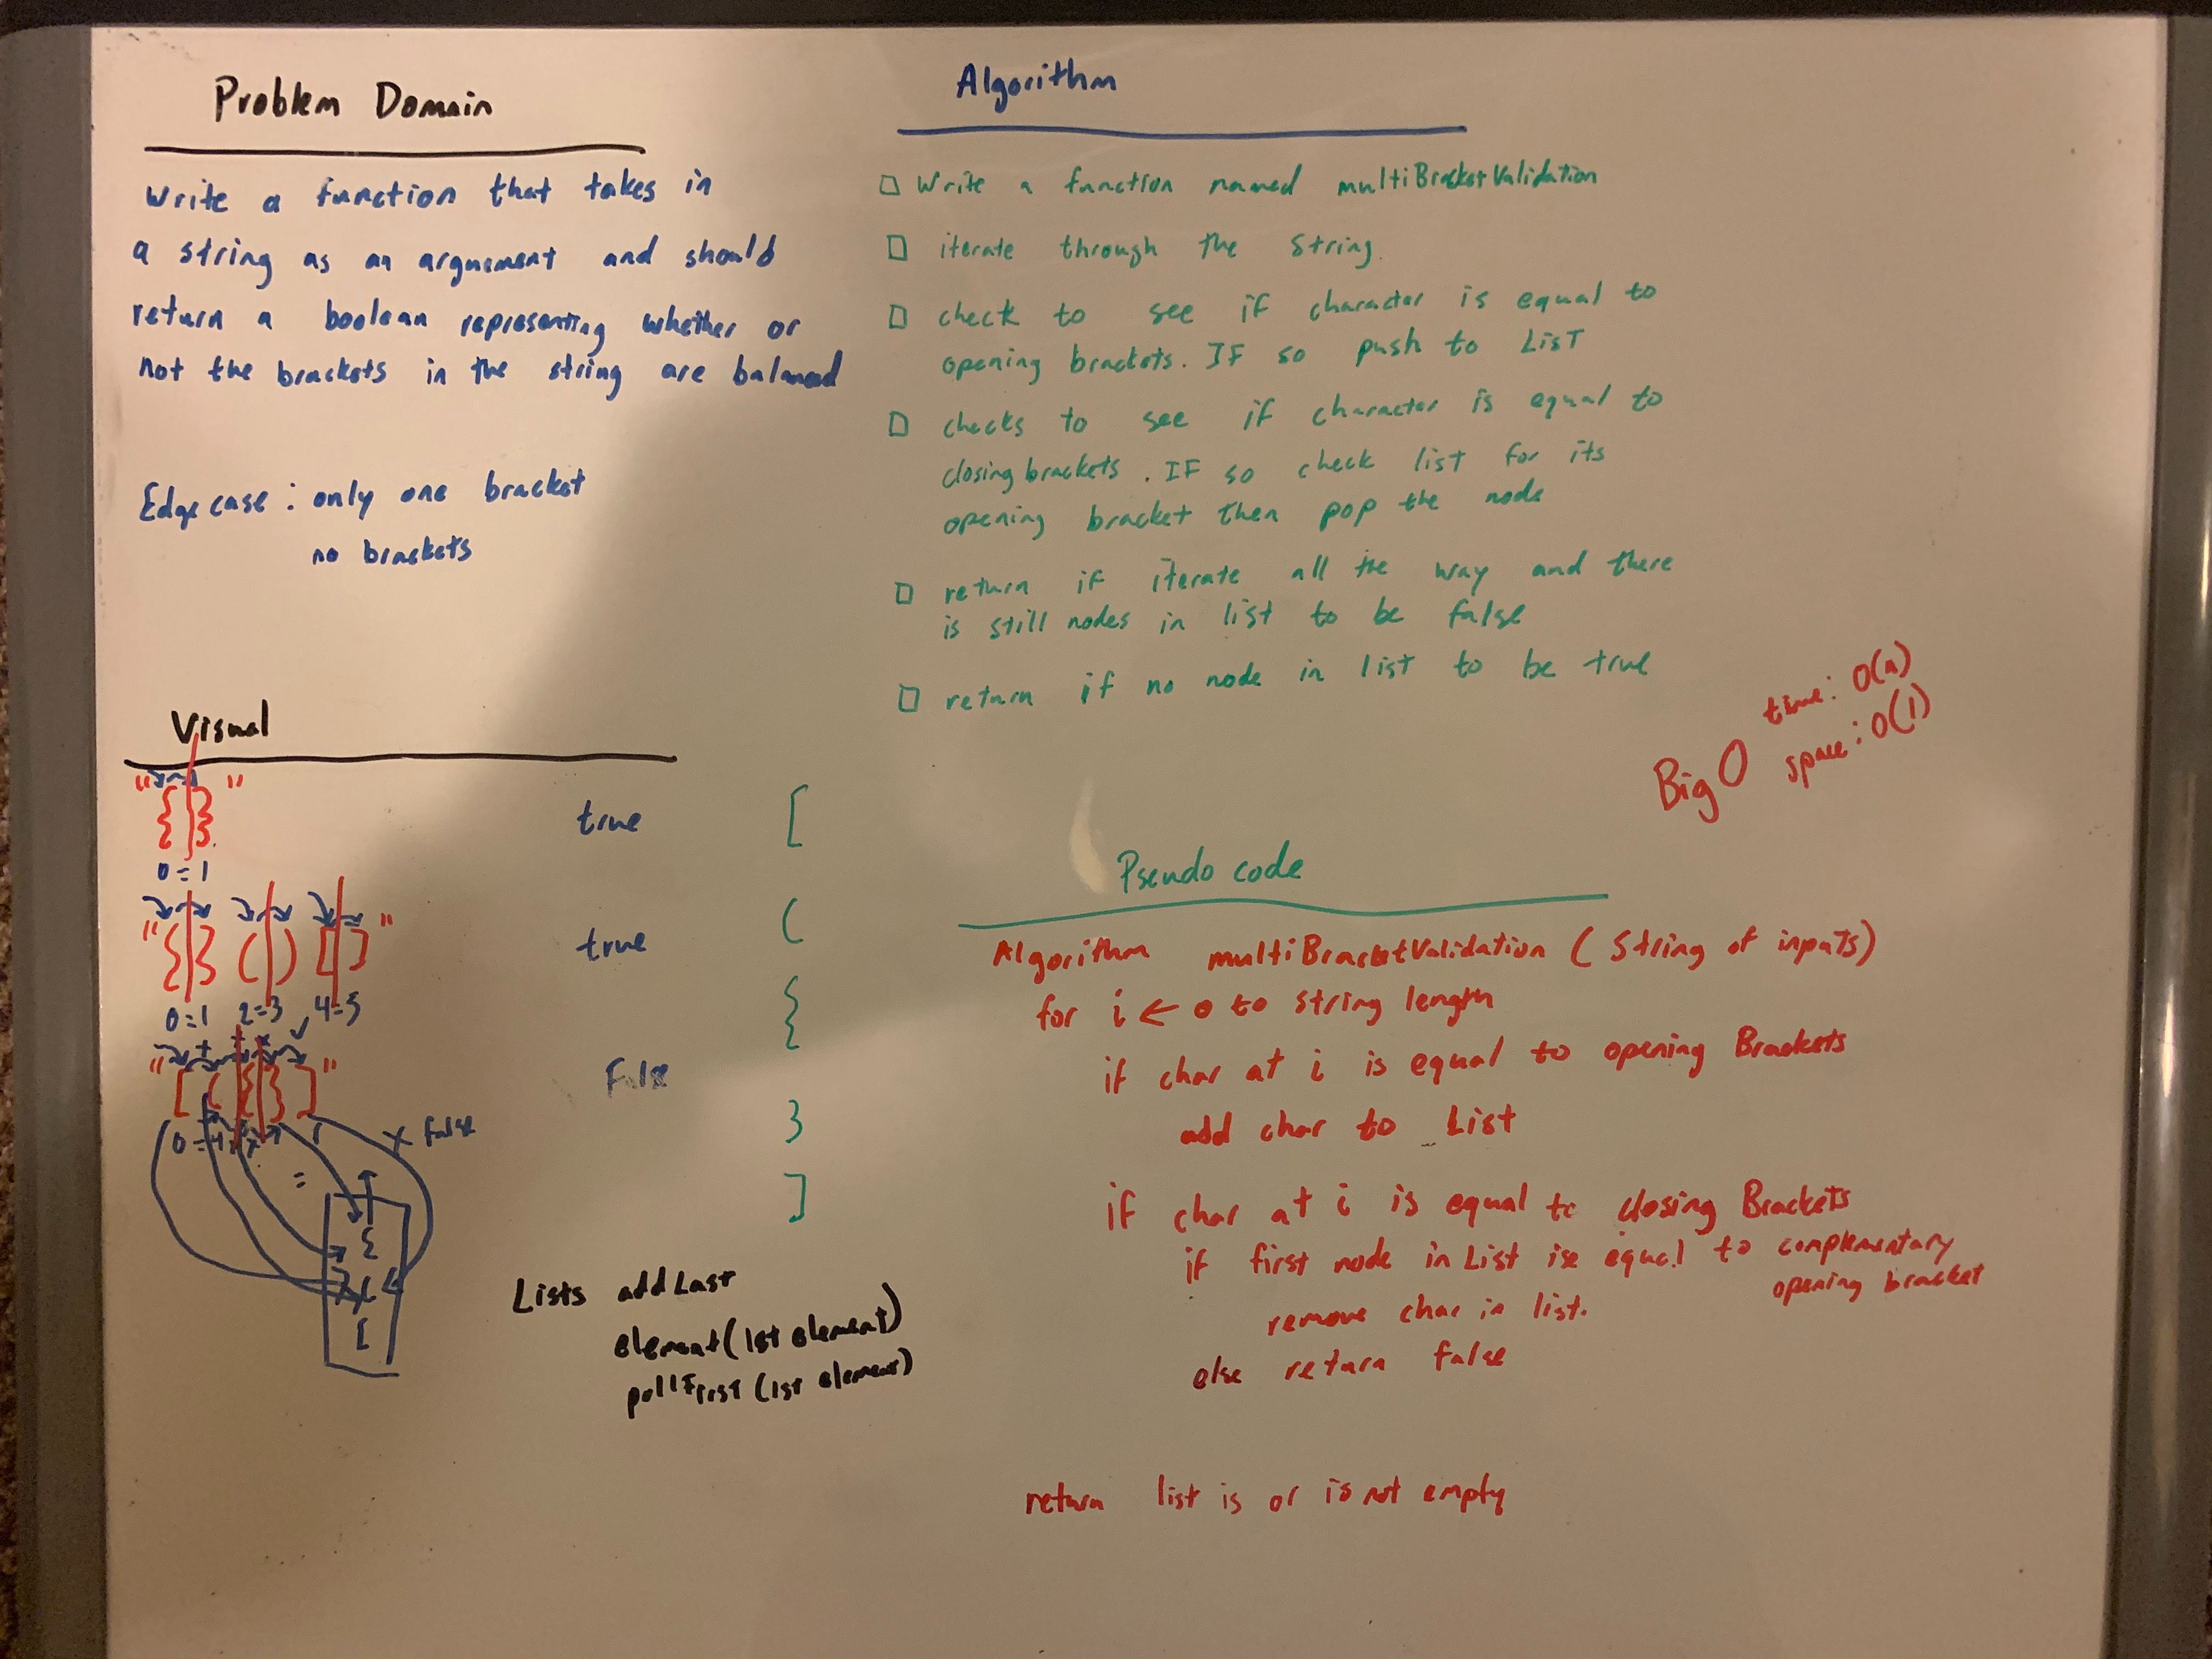 Problem Domain
Write a function that takes in
a string as an arguement and should
return a boolean representing whether or
not the brackets in the string are balanced
Edge case : only one bracket
no brackets
Algorithm
□ Write a function named multiBracketValidation
□ iterate through the String.
□ check to see if character is equal to
opening brackets. IF so push to LisT
□ checks to see if character is equal to
closing brackets. IF so check list for its
opening bracket then pop the node
□ return if iterate all the way and there
is still nodes in list to be false
□ return if no node in list to be true
Big O time: O(n)
space: O(1)
Visual
"{}" true
0=1
"{}()[]" true
0=1 2=3 4=5
"[({}]" False
x false
=
{
(
[
[
(
{
}
]
Lists addLast
element(1st element)
pollFirst (1st element)
Pseudo code
Algorithm multiBracketValidation (String of inputs)
for i ← 0 to string length
if char at i is equal to opening Brackets
add char to List
if char at i is equal to closing Brackets
if first node in List ise equal to complementary
opening bracket
remove char in list.
else return false
return list is or is not empty